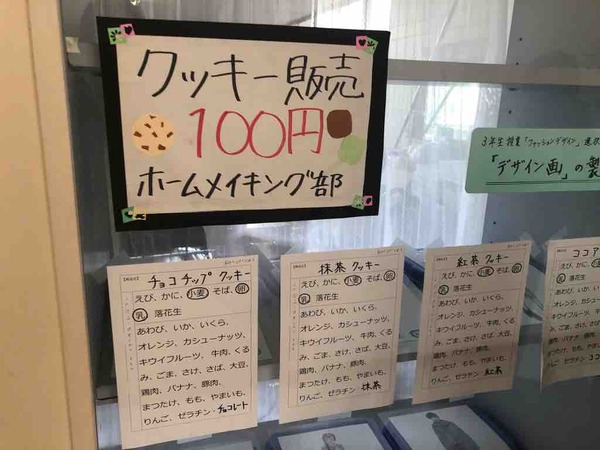 クッキー販売
100円
ホームメイキング部
3年生授業「ファッションデザイン」選択
「デザイン画」の製
チョコチップ クッキー
えび、かに、小麦 そば、卵
乳 落花生
あわび、いか、いくら、
オレンジ、カシューナッツ、
キウイフルーツ、牛肉、くる
み、ごま、さけ、さば、大豆、
鶏肉、バナナ、豚肉、
まつたけ、もも、やまいも、
りんご、ゼラチン・チョコレート
抹茶 クッキー
えび、かに、小麦 そば、卵
乳 落花生
あわび、いか、いくら、
オレンジ、カシューナッツ、
キウイフルーツ、牛肉、くる
み、ごま、さけ、さば、大豆、
鶏肉、バナナ、豚肉、
まつたけ、もも、やまいも、
りんご、ゼラチン・抹茶
紅茶 クッキー
えび、かに、小麦 そば、卵
乳 落花生
あわび、いか、いくら、
オレンジ、カシューナッツ、
キウイフルーツ、牛肉、くる
み、ごま、さけ、さば、大豆、
鶏肉、バナナ、豚肉、
まつたけ、もも、やまいも、
りんご、ゼラチン・紅茶
ココア
えび、かに、
乳 落花生
あわび、いか、
オレンジ、カシ
キウイフルー
み、ごま、さ
鶏肉、バナナ
まつたけ、も
りんご、ゼラチン ココ